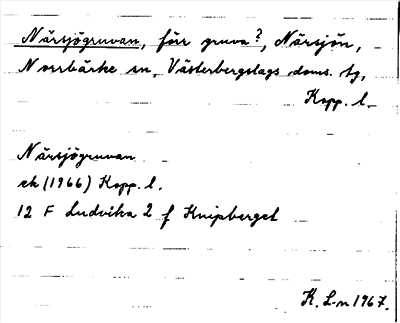 Närsjögruvan, förr gruva?, Närsjön,
Norrbärke sn, Västerbergslags doms. tg,
Kopp. l.
Närsjögruvan
ek (1966) Kopp. l.
12 F Ludvika 2 f Knipberget
K. L-n 1967.